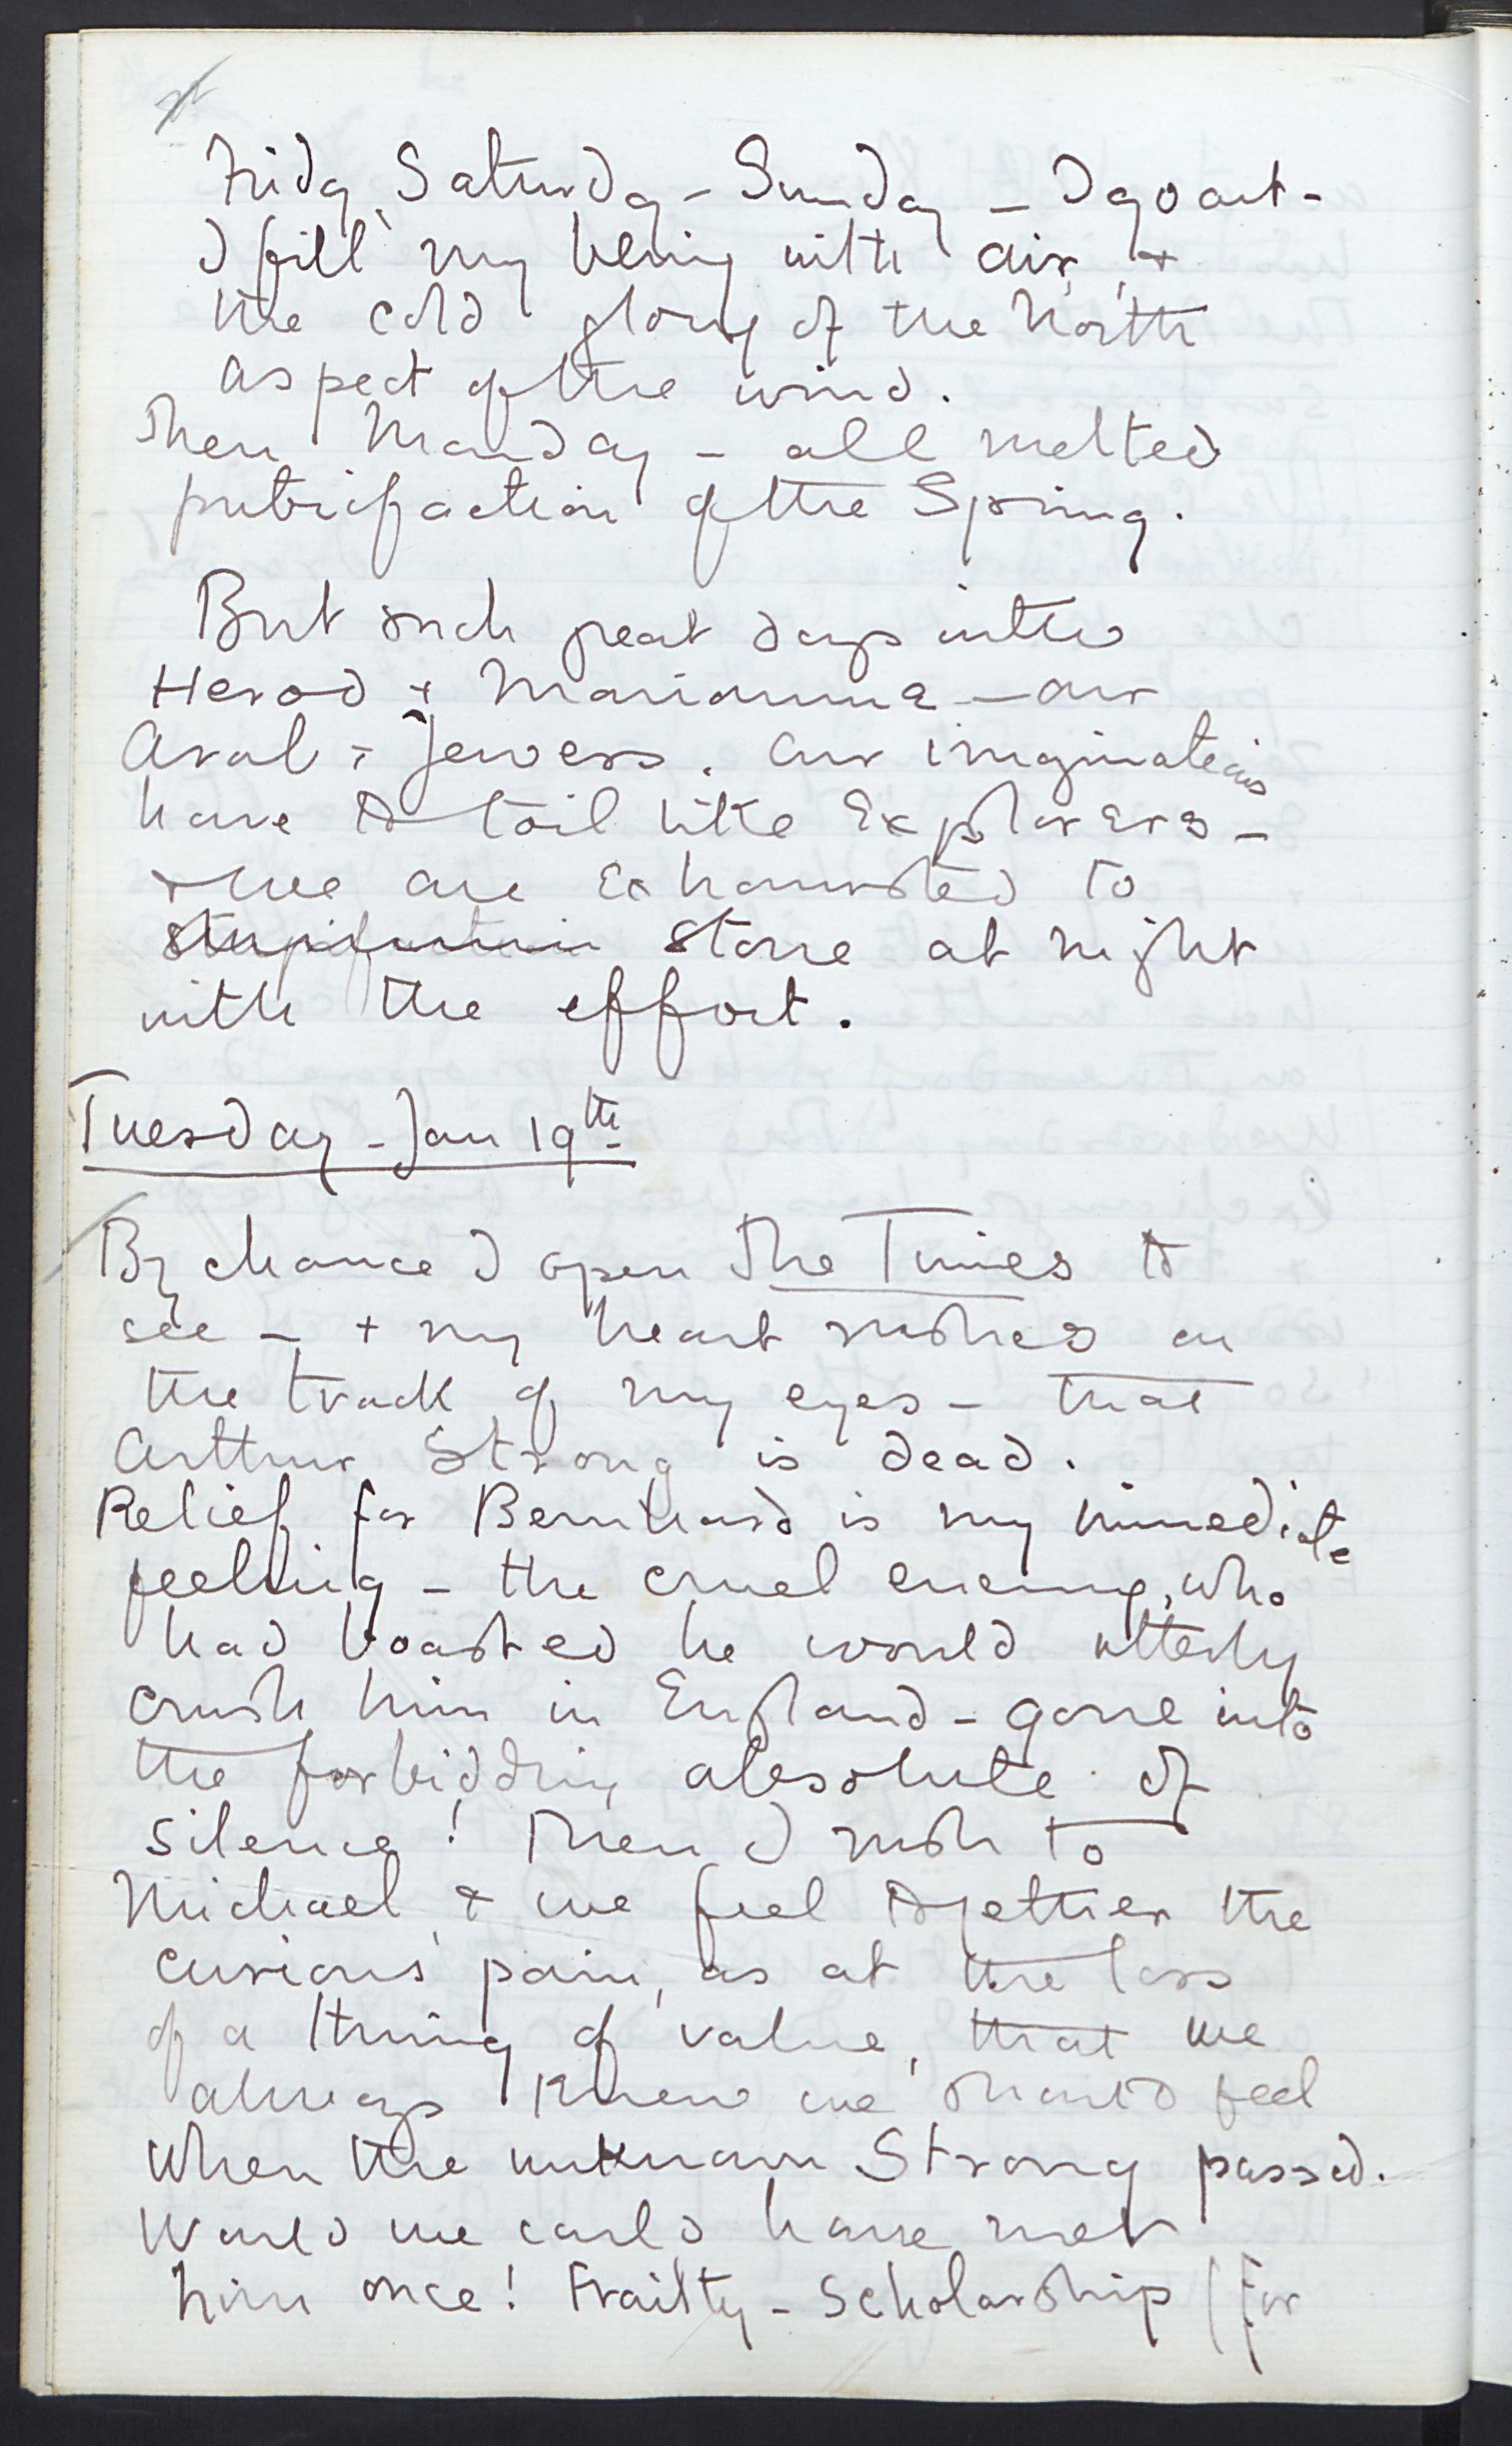 Friday, Saturday – Sunday – I go out –
I fill my being with air, &
the cold glory of the North
aspect of the wind.
Then Monday – all melted
putrifaction of the Spring.
But such great days with
Herod & Mariamne – our
Arab & Jewess. Our imaginations
have to toil like Explorers –
& we are exhausted to
stupifaction stone at night
with the effort.
Tuesday – Jan 19th
By chance I open The Times to
see – & my heart rushes on
the track of my eyes – that
Arthur Strong is dead.
Relief for Bernhard is my immediate
feeling – the cruel enemy, who
had boasted he would utterly
crush him in England – gone into
the forbidding absolute of
silence! Then I rush to
Michael, & we feel together the
curious pain, as at the loss
of a thing of value, that we
always knew we should feel
when the unknown Strong passed.
Would we could have met
him once! Frailty – Scholarship (for